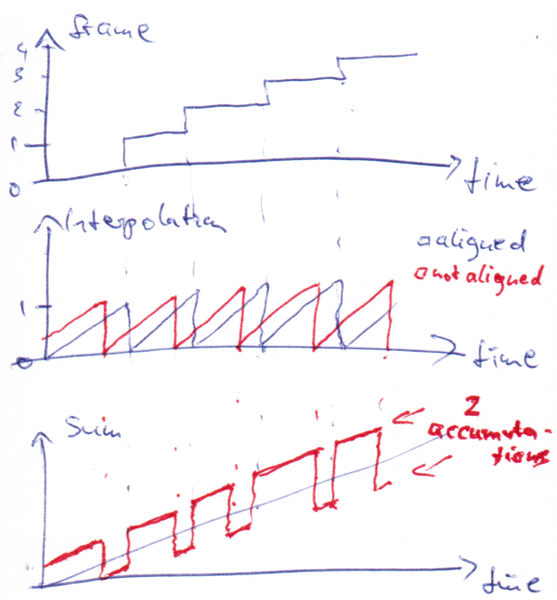 frame
4
3
2
1
0
time
Interpolation
aligned
not aligned
1
0
time
Sum
2
accumula-
tions
time